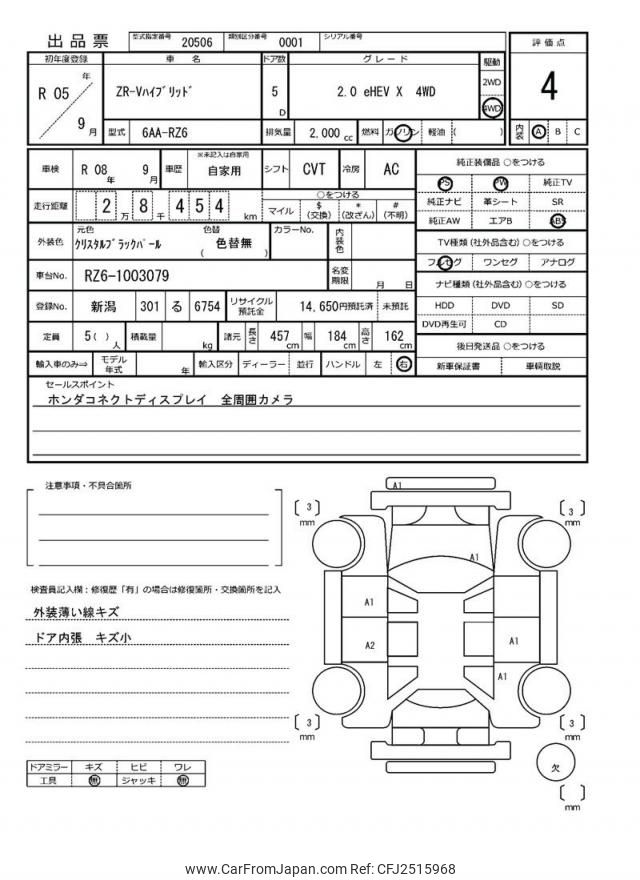 出品票
型式指定番号 20506 類別区分番号 0001 シリアル番号
評価点
4
初年度登録 車名 ドア数 グレード 駆動
R 05 年 9 月
ZR-Vハイブリッド
5 D
2.0 eHEV X 4WD
2WD
4WD
型式 6AA-RZ6 排気量 2,000 cc 燃料 ガソリン 軽油 ( )
内装 A B C
車検 R 08 年 9 月 車歴 ※未記入は自家用 自家用 シフト CVT 冷房 AC
走行距離 2 万 8 千 4 5 4 km
○をつける
マイル $(交換) *(改ざん) #(不明)
外装色 元色 クリスタルブラックパール 色替 ( 色替無 ) カラーNo. 内装色
車台No. RZ6-1003079 名変期限 月 日
登録No. 新潟 301 る 6754 リサイクル預託金 14,650円預託済 未預託
定員 5( )人 積載量 kg 諸元 長さ 457cm 幅 184cm 高さ 162cm
輸入車のみ⇒ モデル年式 年 輸入区分 ディーラー 並行 ハンドル 左 右
純正装備品 ○をつける
PS PW 純正TV
純正ナビ 革シート SR
純正AW エアB ABS
TV種類(社外品含む)○をつける
フルセグ ワンセグ アナログ
ナビ種類(社外品含む)○をつける
HDD DVD SD
DVD再生可 CD
後日発送品 ○をつける
新車保証書 車輌取説
セールスポイント
ホンダコネクトディスプレイ 全周囲カメラ
注意事項・不具合箇所
検査員記入欄:修復歴「有」の場合は修復箇所・交換箇所を記入
外装薄い線キズ
ドア内張 キズ小
ドアミラー キズ ヒビ ワレ
工具 無 ジャッキ 無
A1
〔 3 〕mm
〔 3 〕mm
A1
A1
A2
A1
A1
〔 3 〕mm
〔 3 〕mm
欠
〔 〕mm
www.CarFromJapan.com Ref: CFJ2515968